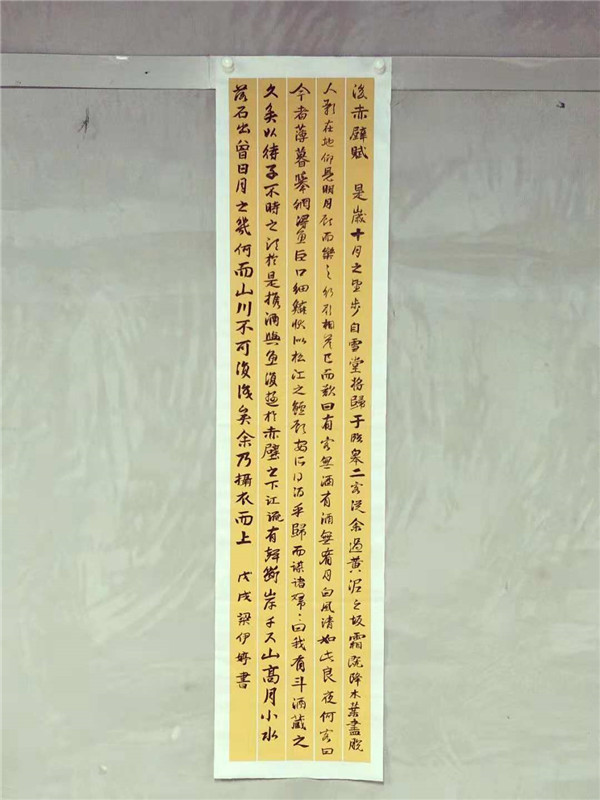 後赤壁賦 是歲十月之望步自雪堂將歸于臨皋二客從余過黃泥之坂霜既降木葉盡脫
人影在地仰見明月顧而樂之行歌相答已而歎曰有客無酒有酒無肴月白風清如此良夜何客曰
今者薄暮舉網得魚巨口細鱗狀似松江之鱸顧安所得酒乎歸而謀諸婦〻曰我有斗酒藏之
久矣以待子不時之須於是攜酒與魚復遊於赤壁之下江流有聲斷岸千尺山高月小水
落石出曾日月之幾何而山川不可復識矣余乃攝衣而上 戊戌 梁伊婷書